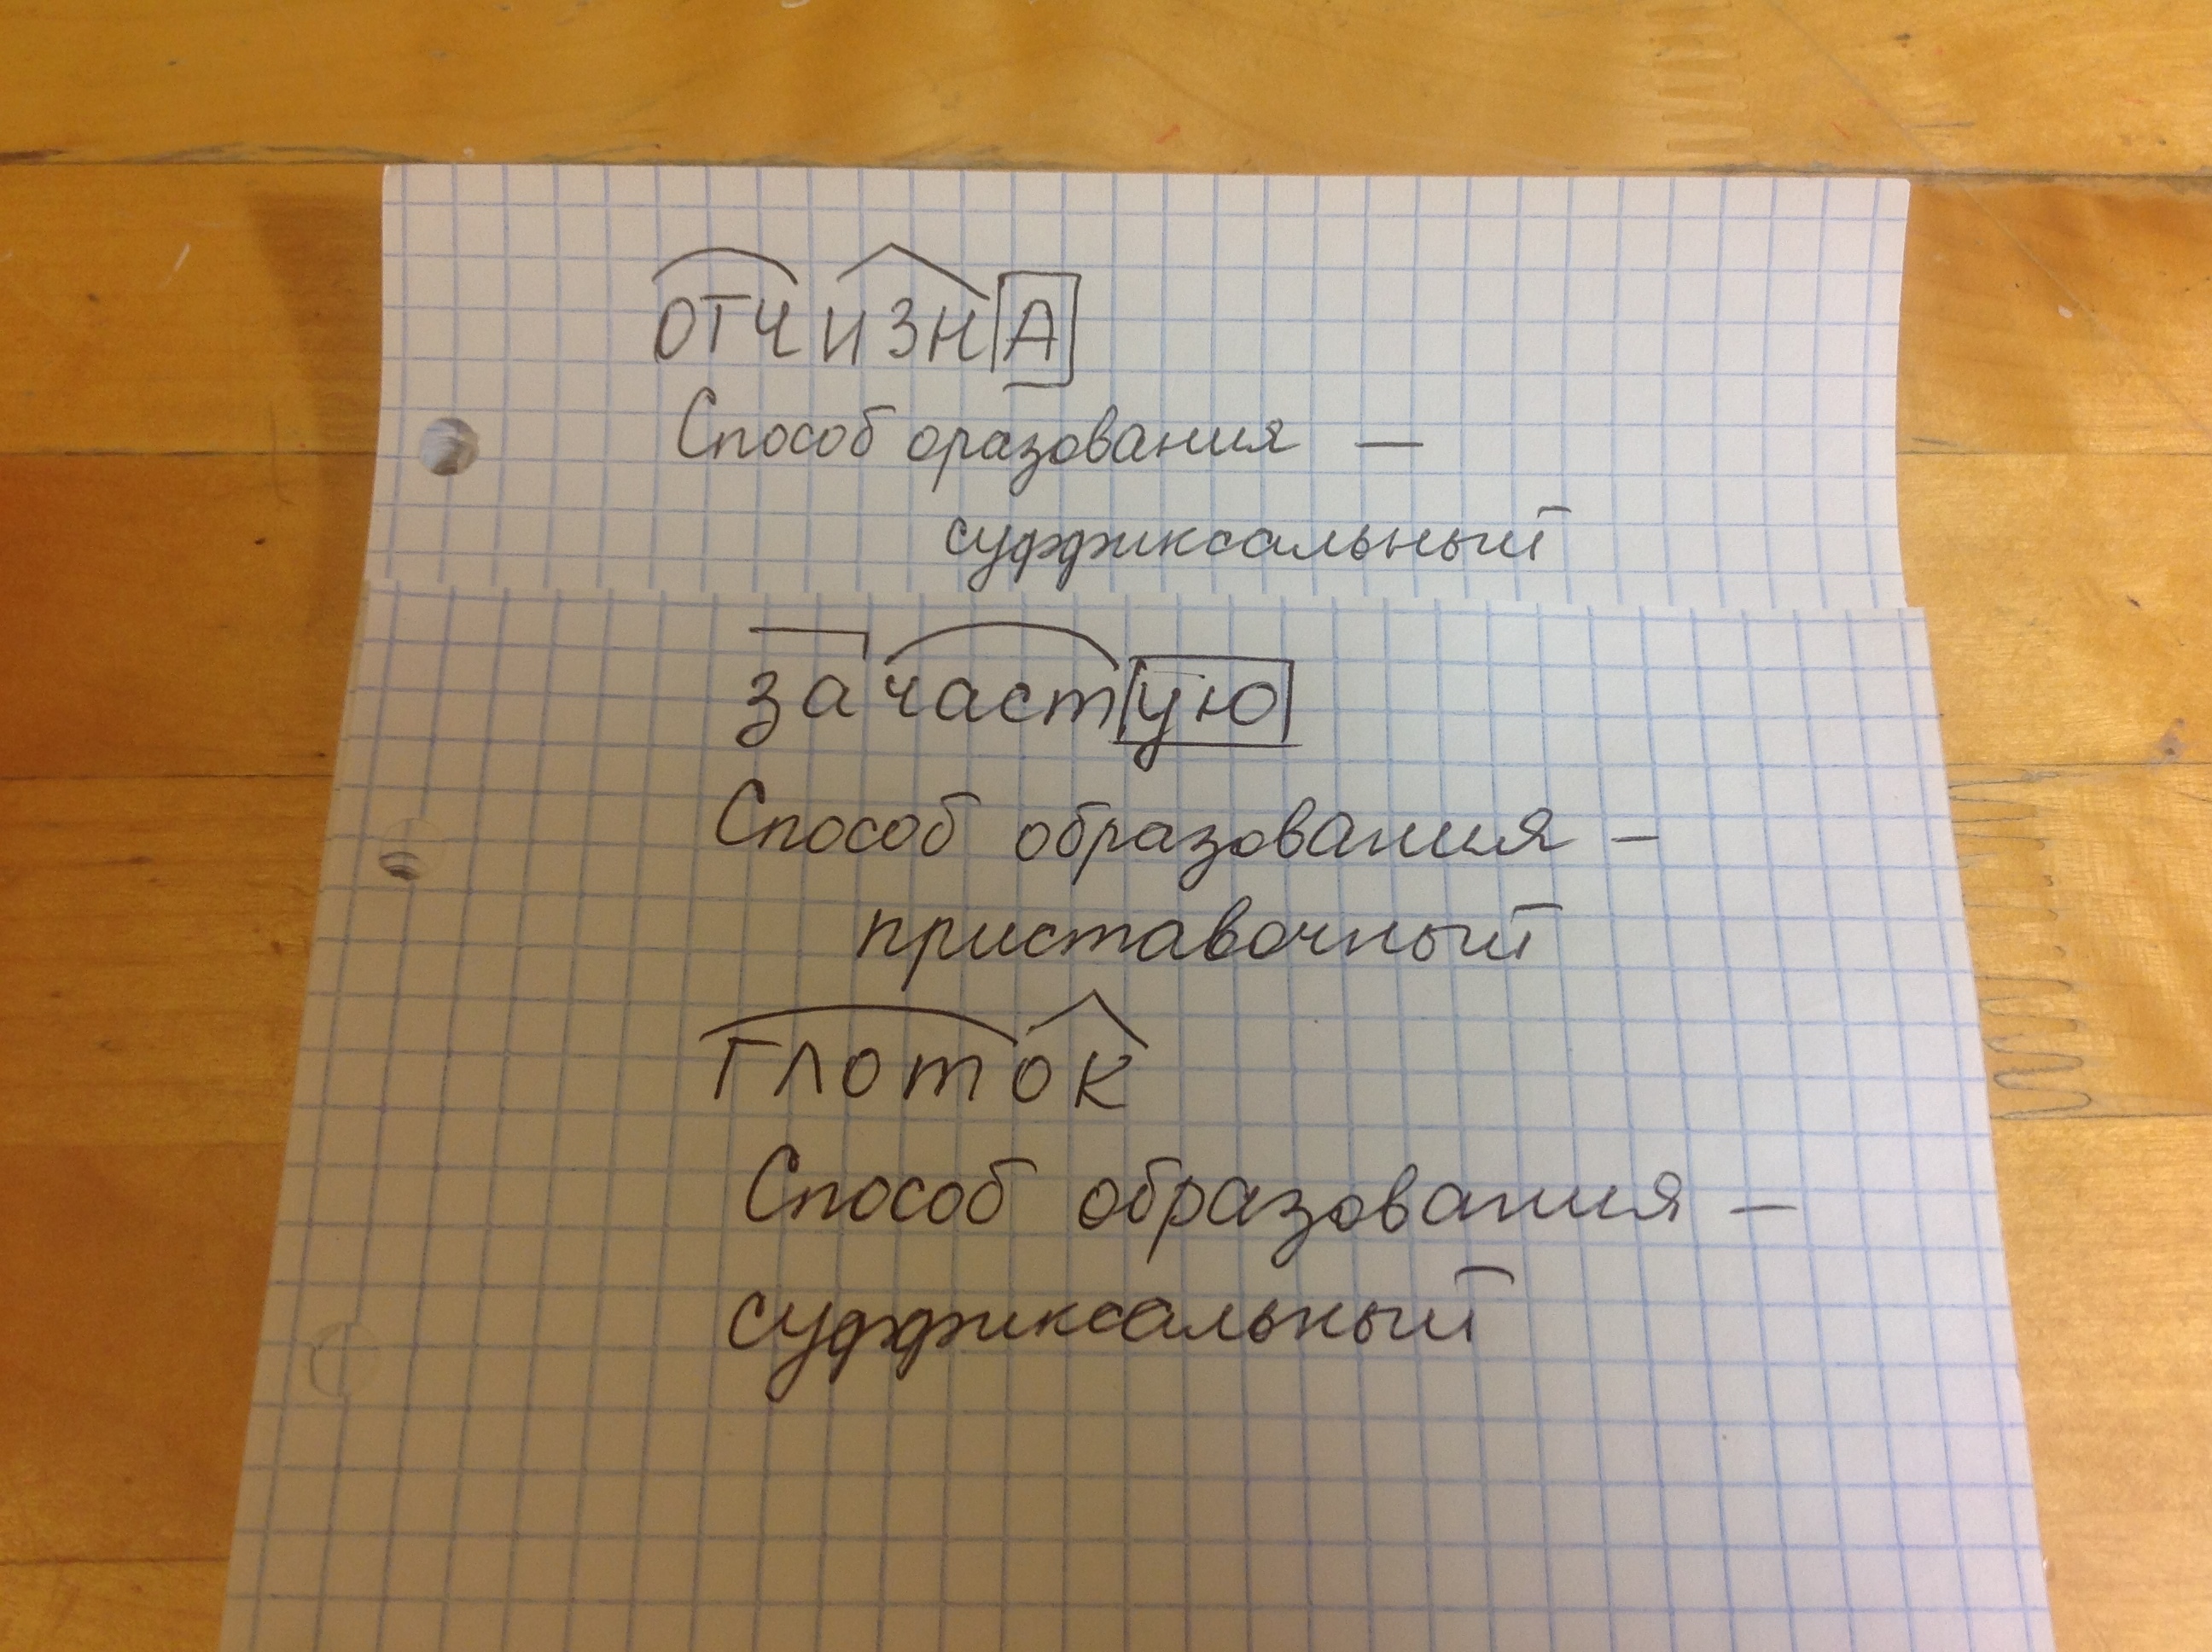 ОТЧИЗНА
Способ оразования —
суффиксальный
зачастую
Способ образования –
приставочный
глоток
Способ образования –
суффиксальный